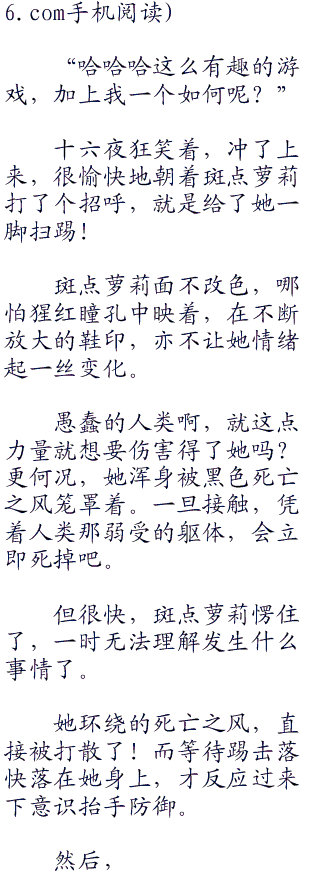 6.com手机阅读)
“哈哈哈这么有趣的游
戏，加上我一个如何呢？”
十六夜狂笑着，冲了上
来，很愉快地朝着斑点萝莉
打了个招呼，就是给了她一
脚扫踢！
斑点萝莉面不改色，哪
怕猩红瞳孔中映着，在不断
放大的鞋印，亦不让她情绪
起一丝变化。
愚蠢的人类啊，就这点
力量就想要伤害得了她吗？
更何况，她浑身被黑色死亡
之风笼罩着。一旦接触，凭
着人类那弱受的躯体，会立
即死掉吧。
但很快，斑点萝莉愣住
了，一时无法理解发生什么
事情了。
她环绕的死亡之风，直
接被打散了！而等待踢击落
快落在她身上，才反应过来
下意识抬手防御。
然后，